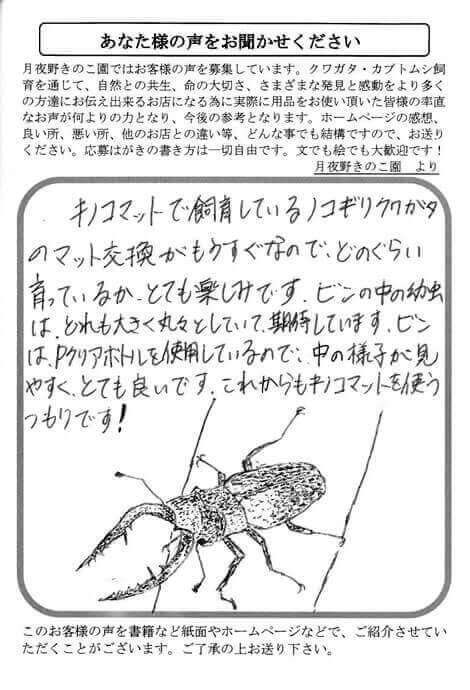 あなた様の声をお聞かせください
月夜野きのこ園ではお客様の声を募集しています。クワガタ・カブトムシ飼
育を通じて、自然との共生、命の大切さ、さまざまな発見と感動をより多く
の方達にお伝え出来るお店になる為に実際に用品をお使い頂いた皆様の率直
なお声が何よりの力となり、今後の参考となります。ホームページの感想、
良い所、悪い所、他のお店との違い等、どんな事でも結構ですので、お送り
ください。応募はがきの書き方は一切自由です。文でも絵でも大歓迎です！
月夜野きのこ園　より
キノコマットで飼育しているノコギリクワガタ
のマット交換がもうすぐなので、どのぐらい
育っているか、とても楽しみです。ビンの中の幼虫
は、どれも大きく丸々としていて、期待しています。ビン
は、Pクリアボトルを使用しているので、中の様子が見
やすく、とても良いです。これからもキノコマットを使う
つもりです！
このお客様の声を書籍など紙面やホームページなどで、ご紹介させてい
ただくことがございます。ご了承の上お送り下さい。